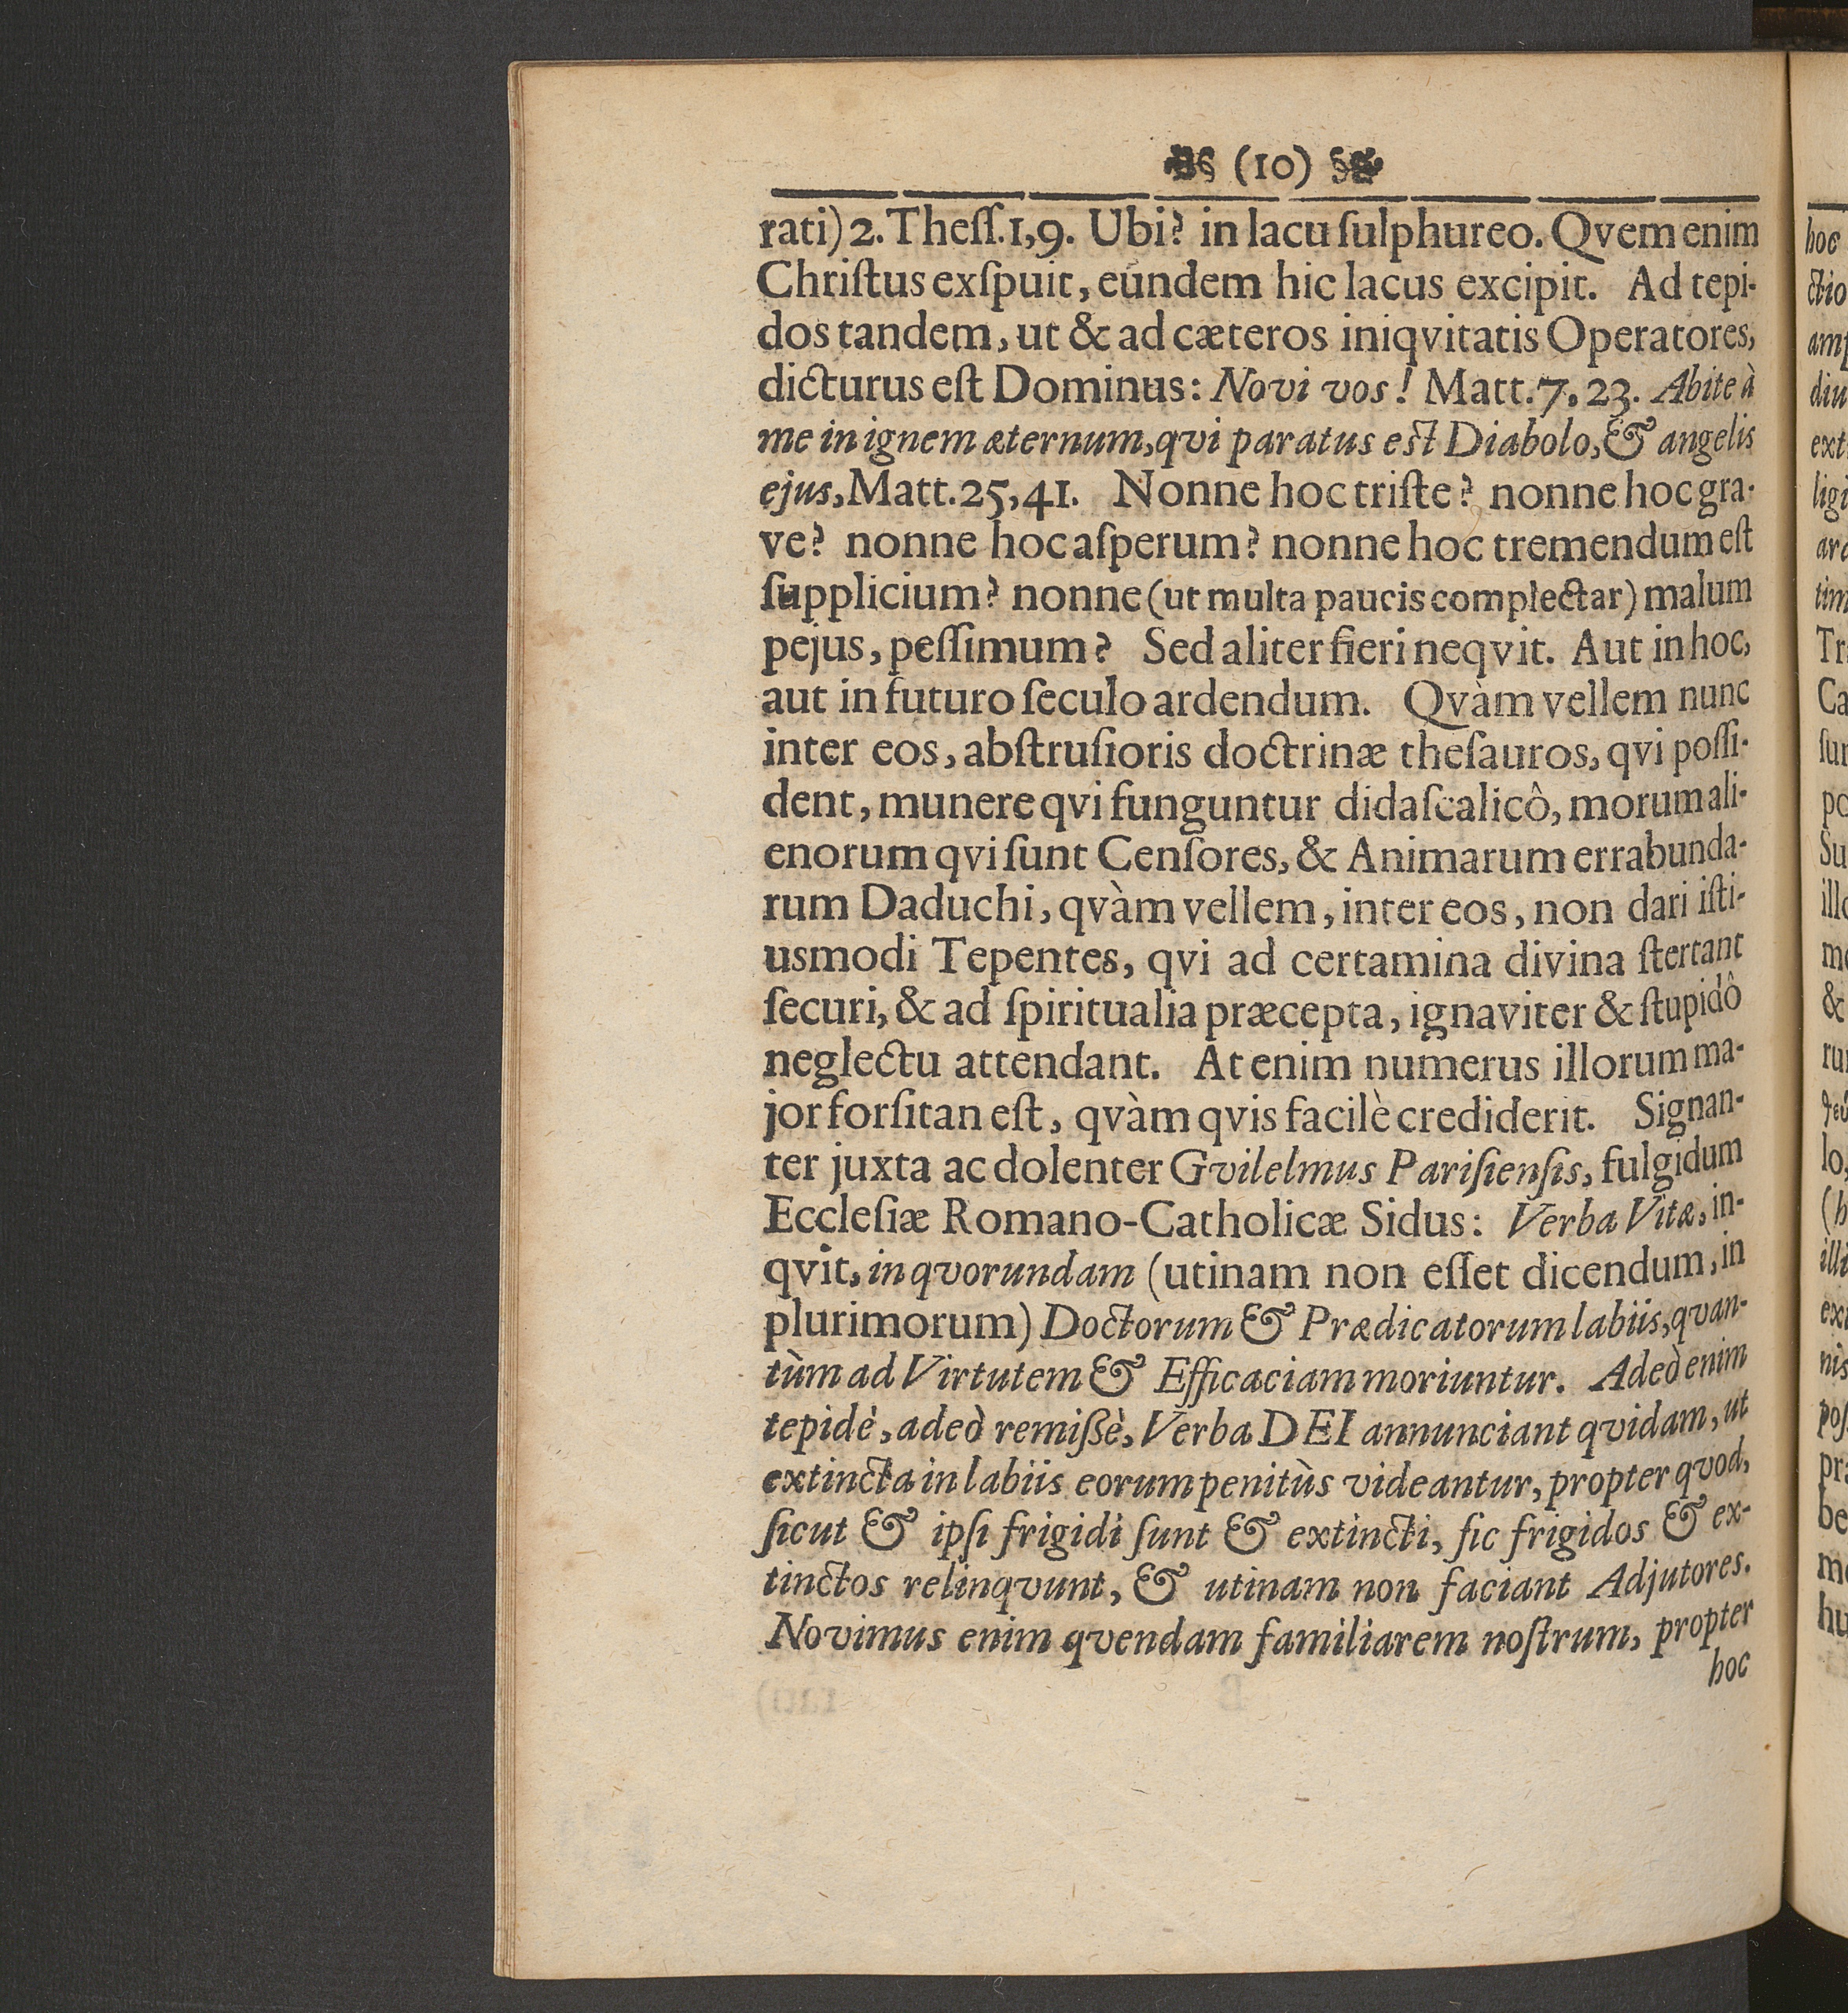 (10)
rati) 2. Theſſ. 1, 9. Ubi? in lacu ſulphureo. Qvem enim
Chriſtus exſpuit, eundem hic lacus excipit. Ad tepi-
dos tandem, ut & ad cæteros iniqvitatis Operatores,
dicturus eſt Dominus: Novi vos! Matt. 7. 23. Abite à
me in ignem æternum, qvi paratus eſt Diabolo, & angelis
ejus, Matt. 25, 41. Nonne hoc triſte? nonne hoc gra-
ve? nonne hoc aſperum? nonne hoc tremendum eſt
ſupplicium? nonne (ut multa paucis complectar) malum
pejus, peſſimum? Sed aliter fieri neqvit. Aut in hoc,
aut in futuro ſeculo ardendum. Qvàm vellem nunc
inter eos, abſtruſioris doctrinæ theſauros, qvi poſſi-
dent, munere qvi funguntur didaſcalicô, morum ali-
enorum qvi ſunt Cenſores, & Animarum errabunda-
rum Daduchi, qvàm vellem, inter eos, non dari iſti-
usmodi Tepentes, qvi ad certamina divina ſtertant
ſecuri, & ad ſpiritualia præcepta, ignaviter & ſtupidô
neglectu attendant. At enim numerus illorum ma-
jor forſitan eſt, qvàm qvis facilè crediderit. Signan-
ter juxta ac dolenter Gvilelmus Pariſienſis, fulgidum
Eccleſiæ Romano-Catholicæ Sidus: Verba Vitæ, in-
qvit, in qvorundam (utinam non eſſet dicendum, in
plurimorum) Doctorum & Prædicatorum labiis, qvan-
tùm ad Virtutem & Efficaciam moriuntur. Adeò enim
tepidè, adeò remiſsè, Verba DEI annunciant qvidam, ut
extincta in labiis eorum penitùs videantur, propter qvod,
ſicut & ipſi frigidi ſunt & extincti, ſic frigidos & ex-
tinctos relinqvunt, & utinam non faciant Adjutores.
Novimus enim qvendam familiarem noſtrum, propter
hoc